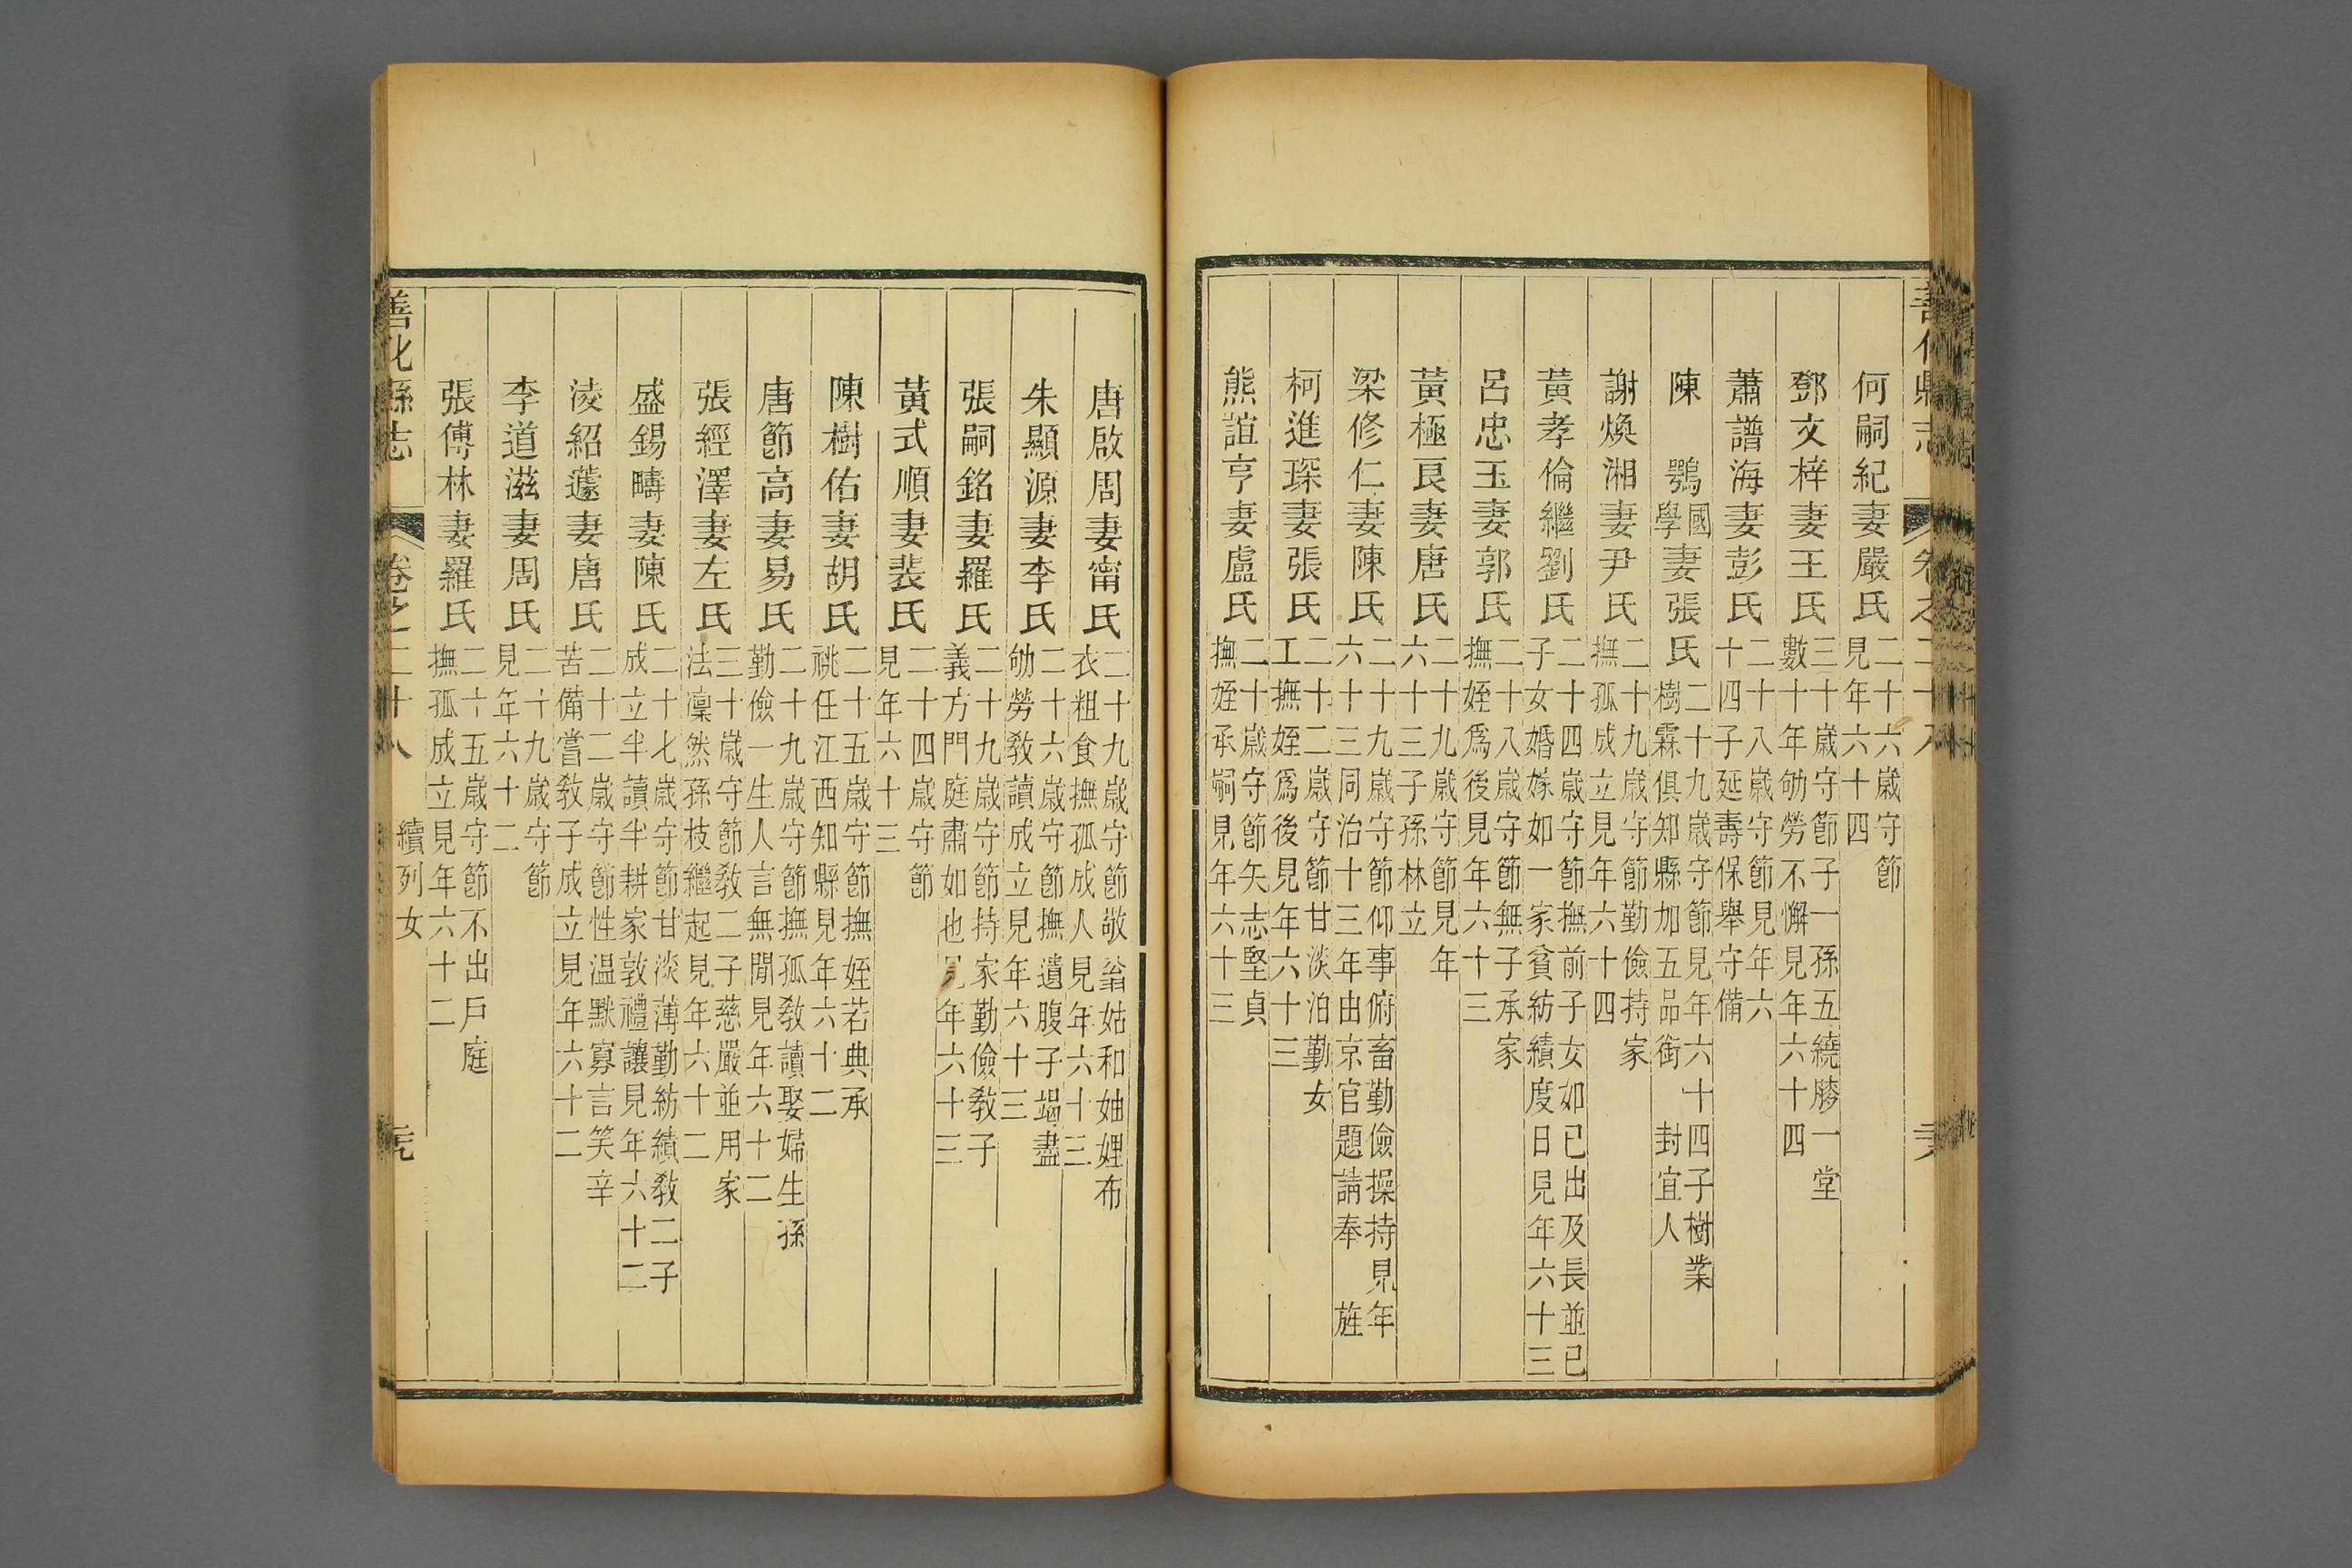 善化縣志 卷之二十八
何嗣紀妻嚴氏 二十六歲守節
見年六十四
鄧文梓妻王氏 三十歲守節子一孫五繞膝一堂
數十年劬勞不懈見年六十四
蕭譜海妻彭氏 二十八歲守節見年六
十四子延壽保舉守備
陳鶚國學妻張氏 二十九歲守節見年六十四子樹業
樹霖俱知縣加五品銜 封宜人
謝煥湘妻尹氏 二十九歲守節勤儉持家
撫孤成立見年六十四
黃孝倫繼劉氏 二十四歲守節撫前子女如已出及長並已
子女婚嫁如一家貧紡績度日見年六十三
呂忠玉妻郭氏 二十八歲守節無子承家
撫姪爲後見年六十三
黃極良妻唐氏 二十九歲守節見年
六十三子孫林立
梁修仁妻陳氏 二十九歲守節仰事俯畜勤儉操持見年
六十三同治十三年由京官題請奉 旌
柯進琛妻張氏 二十二歲守節甘淡泊勤女
工撫姪爲後見年六十三
熊誼亨妻盧氏 二十歲守節矢志堅貞
撫姪承嗣見年六十三
唐啟周妻甯氏 二十九歲守節敬翁姑和妯娌布
衣粗食撫孤成人見年六十三
朱顯源妻李氏 二十六歲守節撫遺腹子竭盡
劬勞教讀成立見年六十三
張嗣銘妻羅氏 二十九歲守節持家勤儉教子
義方門庭肅如也見年六十三
黃式順妻裴氏 二十四歲守節
見年六十三
陳樹佑妻胡氏 二十五歲守節撫姪若典承
祧任江西知縣見年六十二
唐節高妻易氏 二十九歲守節撫孤教讀娶婦生孫
勤儉一生人言無閒見年六十二
張經澤妻左氏 三十歲守節教二子慈嚴並用家
法凜然孫枝繼起見年六十二
盛錫疇妻陳氏 二十七歲守節甘淡薄勤紡績教二子
成立半讀半耕家敦禮讓見年六十二
淩紹蘧妻唐氏 二十二歲守節性温默寡言笑辛
苦備嘗教子成立見年六十二
李道滋妻周氏 二十九歲守節
見年六十二
張傅林妻羅氏 二十五歲守節不出戶庭
撫孤成立見年六十二
善化縣志 卷之二十八 續列女